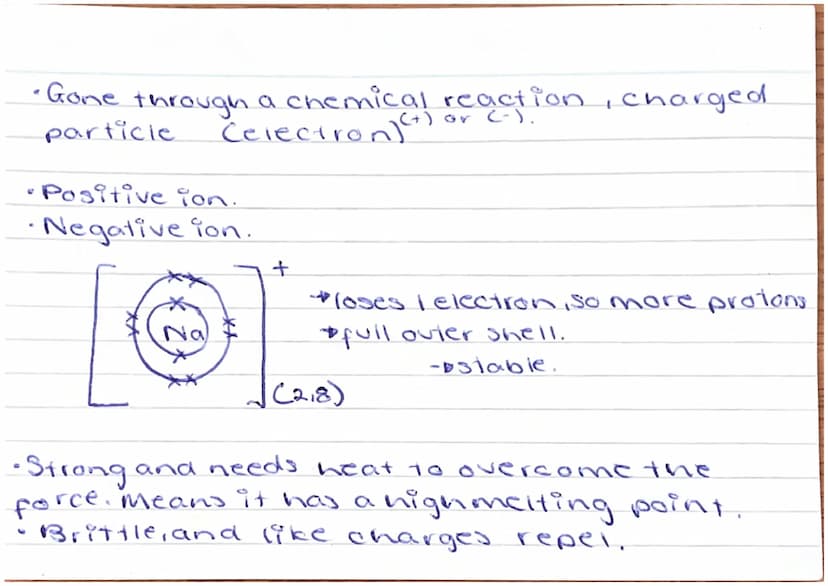 • Gone through a chemical reaction, charged
particle (electron) (+) or (-).
• Positive ion.
• Negative ion.
+
Na
→ loses 1 electron, so more protons
→ full outer shell.
→ stable.
(2,8)
• Strong and needs heat to overcome the
force. Means it has a high melting point.
• Brittle, and like charges repel.